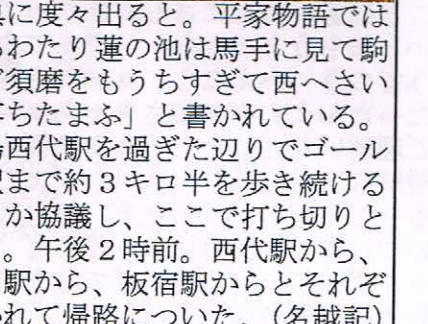 に度々出ると。平家物語では
わたり蓮の池は馬手に見て駒
須磨をもうちすぎて西へさい
ちたまふ」と書かれている。
西代駅を過ぎた辺りでゴール
まで約３キロ半を歩き続ける
か協議し、ここで打ち切りと
。午後２時前。西代駅から、
駅から、板宿駅からとそれぞ
れて帰路についた。（名越記）